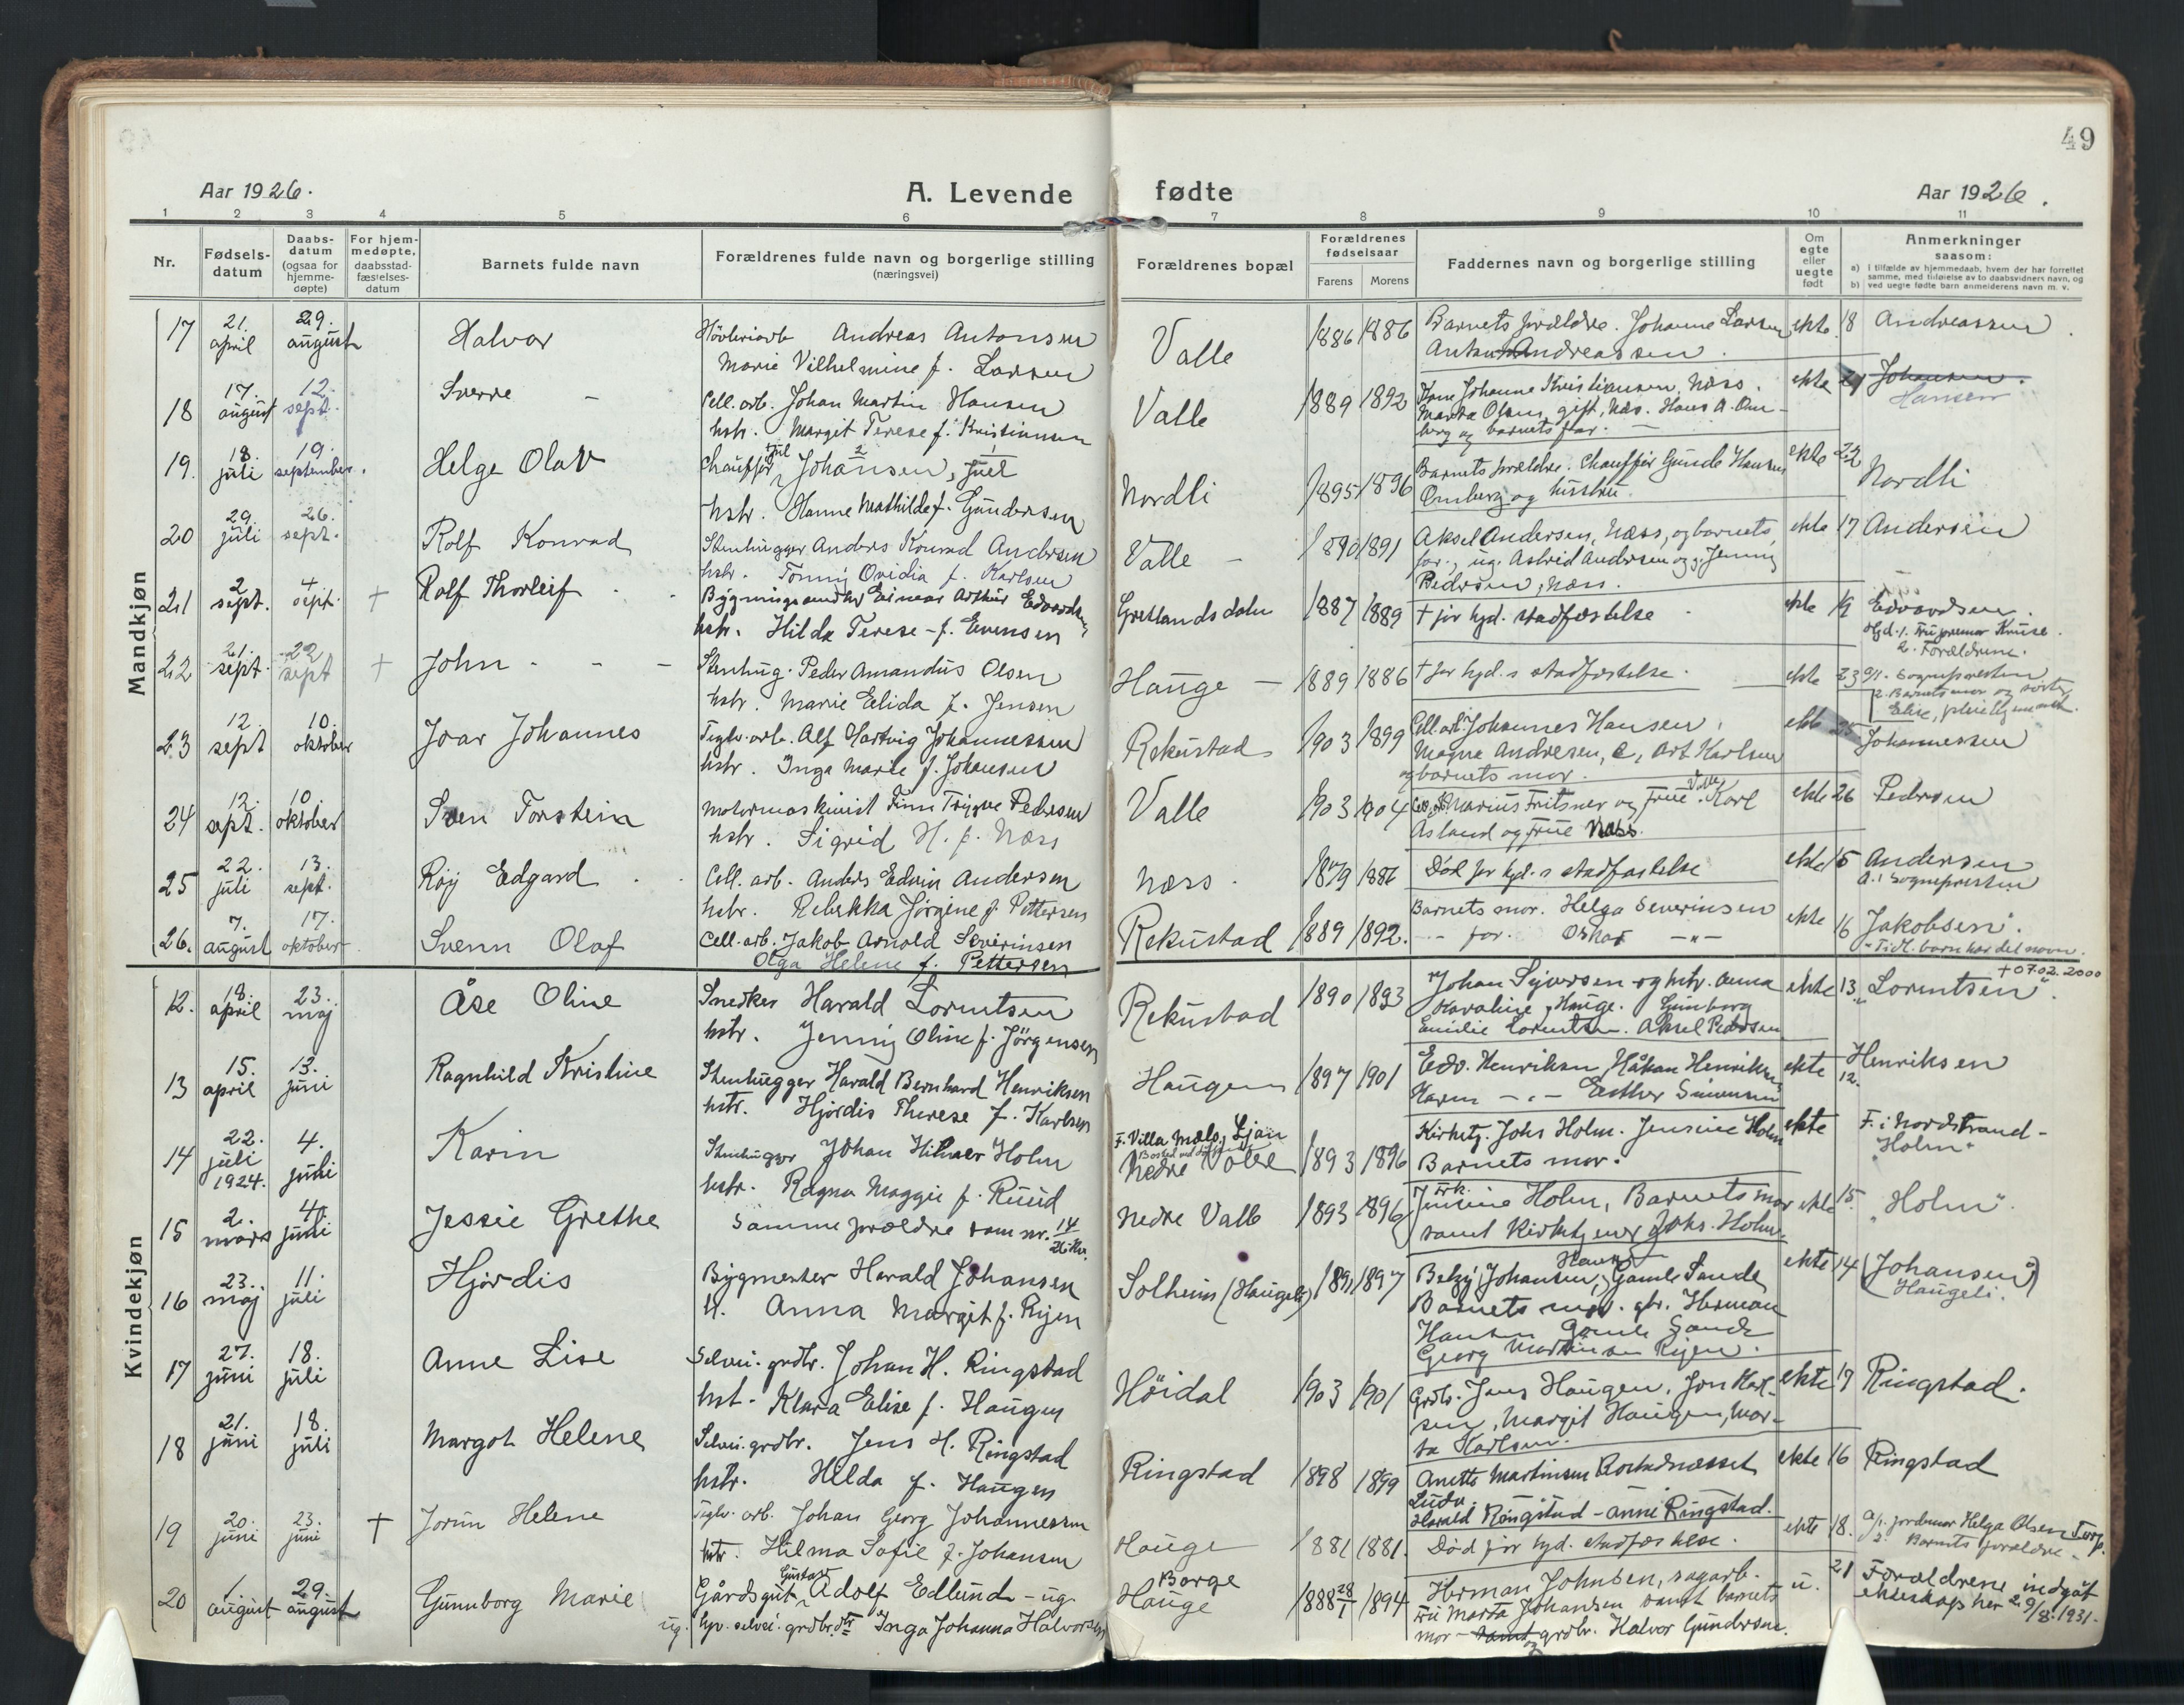 49
Aar 1926.
A. Levende fødte
Aar 1926.
1 2 3 4 5 6 7 8 9 10 11
Nr.
Fødsels-
datum
Daabs-
datum
(ogsaa for
hjemme-
døpte)
For hjem-
medøpte,
daabsstad-
fæstelses-
datum
Barnets fulde navn
Forældrenes fulde navn og borgerlige stilling
(næringsvei)
Forældrenes bopæl
Forældrenes
fødselsaar
Farens Morens
Faddernes navn og borgerlige stilling
Om
egte
eller
uegte
født
Anmerkninger
saasom:
a) I tilfælde av hjemmedaab, hvem der har forrettet
samme, med tilføielse av to daabsvidners navn, og
b) ved uegte fødte barn anmelderens navn m. v.
Mandkjøn
17 21. april 29. august Halvor
Høvleriarb Andreas Antonsen
Marie Vilhelmine f. Larsen
Valle 1886 1886
Barnets forældre. Johanne Larsen
Anton Andreassen.
ekte. 18 Andreassen.
18 17. august 12. sept. Sverre -
Cell. arb. Johan Martin Hansen
hstr. Margit Terese f. Kristiansen
Valle 1889 1892
Kone Johanne Kristiansen, Næss.
Marta Olsen, gift, Næs. Hans A. Om-
berg og barnets far. -
ekte 24 Johansen.
Hansen
19. 18. juli 19. september. Helge Olav
Chauffør Juel Johansen, Juel
hstr. Hanne Mathilde f. Gundersen
Nordli 1895 1896
Barnets forældre. Chauffør Gunde Hansen
Omberg og hustru.
ekte 22 Nordli
20 29. juli 26. sept. Rolf Konrad
Stenhugger Anders Konrad Andersen
hstr. Tonny Ovidia f. Karlsen
Valle - 1890 1891
Aksel Andersen, Næss, og barnets
far., ug. Astrid Andersen og g. Jenny
Pedersen, Næss.
ekte 17 Andersen
21 2 sept. 4 sept. † Rolf Thorleif
Bygningssnedker Einar Arthur Edvardsen
hstr. Hilda Terese - f. Evensen
Greslandsdalen 1887 1889
† før hjd. stadfæstelse
ekte 19 Edvardsen.
Hjd. 1. Fru jormor Kruse.
2. Forældrene.
22 21. sept. 22 sept † John - - -
Stenhug. Peder Amandus Olsen
hstr. Marie Elida f. Jensen
Hauge - 1889 1886
† før hjd. s stadfæstelse.
ekte 23 a/1. Sognepresten
2. Barnets mor og søster
Elise, pleiehjemmet.
23 12. sept 10. oktober Joar Johannes
Teglv. arb. Alf Hartvig Johannessen
hstr. Inga Marie f. Johansen
Rekustad 1903 1899
Cell. arb. Johannes Hansen,
Magna Andresen, C, Art. Karlsen
og barnets mor.
ekte 25 Johannessen
24 12. sept. 10. oktober Sven Torstein
Motormaskinist Finn Trygve Pedersen
hstr. Sigrid H. f. Næss
Valle 1903 1904
Cell. arb. Marius Fritsner og frue Valle. Karl
Asland og frue Næss.
ekte 26 Pedersen
25 22. juli 13. sept. Røy Edgard
Cell. arb. Anders Edvin Andersen
hstr. Rebekka Jørgine f. Pettersen
Næss. 1879 1886
Død før hjd. s stadfæstelse
ekte 15 Andersen
a. 1 Sognepresten
26. 7. august 17. oktober Svenn Olaf
Cell. arb. Jakob Arnold Severinsen
Olga Helene f. Pettersen
Rekustad 1889 1892.
Barnets mor. Helga Severinsen
- - far. Oskar - " -
ekte 16 Jakobsen".
"Tidl. barn har det navn.
Kvindekjøn
12. 18. april 23. maj Åse Oline
Snedker Harald Lorentsen
hstr. Jenny Oline f. Jørgensen
Rekustad 1890 1893
Johan Syversen og hstr. Anna
Karoline, Hauge. Gunborg
Emilie Lorentsen. Aksel Pedersen
ekte 13. "Lorentsen".
† 07.02.2000
13 15. april 13. juni Ragnhild Kristine
Stenhugger Harald Bernhard Henriksen
hstr. Hjørdis Therese f. Karlsen
Haugen 1897 1901
Edv. Henriksen, Håkon Henriksen,
Karen - " - Esther Simensen
ekte 12. Henriksen
14 22. juli 1924. 4. juni Karin
Stenhugger Johan Hilmer Holm
hstr. Ragna Maggie f. Ruud
F. Villa Mælø, Ljan
Nedre Valle 1893 1896
Kirketj. Johs Holm. Jensine Holm
Barnets mor.
ekte F. i Nordstrand -
"Holm"
15 2. mars 4. juni Jessie Grethe
Samme forældre som nr. 14
Nedre Valle 1893 1896
Frk. Jensine Holm, Barnets mor
samt Kirketjener Johs. Holm.
ekte 15. "Holm".
16 23. maj 11. juli Hjørdis
Bygmester Harald Johansen
H. Anna Margit f. Ryen
Solheim (Haugeli) 1891 1897
Betzy Johansen, Gamle Sande
Barnets mor. gbr. Herman
Hansen Gamle Sande
Georg Martinsen Ryen.
ekte 14 (Johansen")
Haugeli.
17 27. juni 18. juli Anne Lise
Selvei. grdbr. Johan H. Ringstad
hst. Klara Elise f. Haugen
Høidal 1903 1901
Grdbr. Jens Haugen, Jon Karl-
sen, Margit Haugen, Mar-
ta Karlsen.
ekte 17 Ringstad.
18 21. juni 18. juli Margot Helene
Selvei. grdbr. Jens H. Ringstad
hstr. Hilda f. Haugen
Ringstad 1898 1899
Anette Martinsen Rostadnesset
Ludv.
Harald Ringstad - Anne Ringstad.
ekte 16 Ringstad
19 20. juni 23. juni † Jorun Helene
Teglv. arb. Johan Georg Johannessen
hstr. Hilma Sofie f. Johansen
Hauge 1881 1881.
Død før hjd. stadfæstelse.
ekte 18. a/1. jordmor Helga Olsen Torp.
2. Barnets forældre.
20 1. august 29. august Gunnborg Marie
Gårdsgut Gustav Adolf Edlund - ug.
ug. Hjv. selvei. grdbr. dtr Inga Johanna Halvorsen
Borge
Hauge 1888 28/1 1894
Herman Johnsen, sagarb.
Fru Marta Johansen samt barnets
mor - samt og grdbr. Halvor Gundersen.
u. 21 Forældrene indgåt
ekteskap her 29/8.1931.